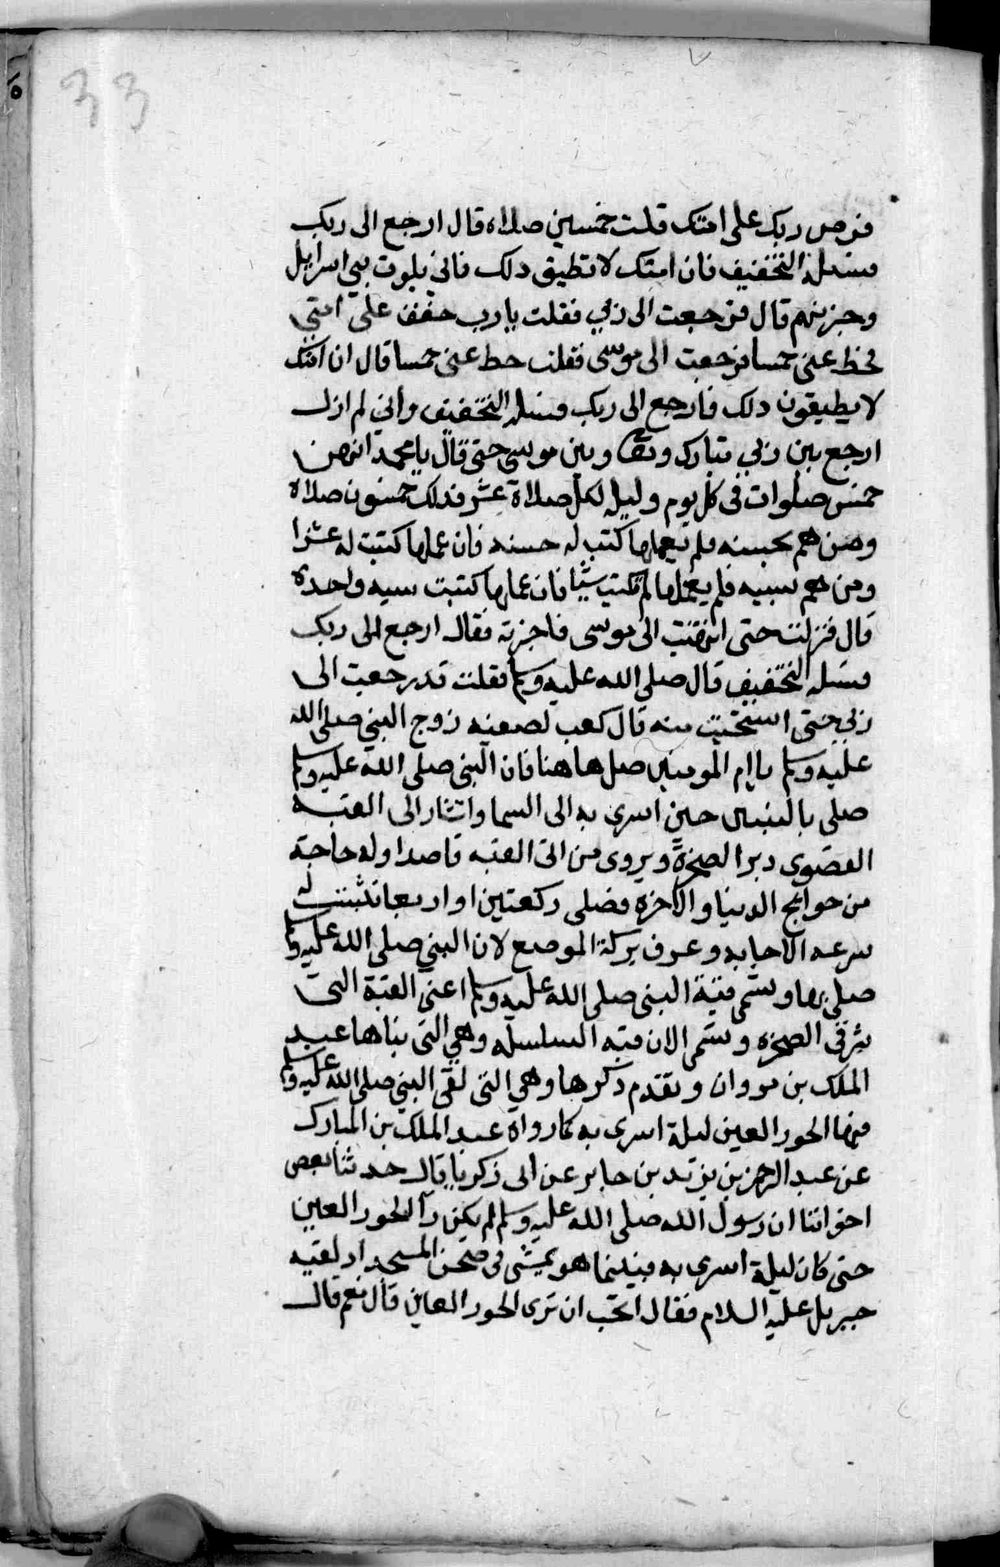 33
فرض ربك على امتك قلت خمسين صلاة قال ارجع الى ربك
فسله التخفيف فان امتك لا تطيق ذلك فاني بلوت بني اسرايل
وخبرتهم قال فرجعت الى ربي فقلت يا رب خفف على امتي
فحط عني خمسا فرجعت الى موسى فقلت حط عني خمسا قال ان امتك
لا يطيقون ذلك فارجع الى ربك فسله التخفيف واني لم ازل
ارجع بين ربي تبارك وتعا وبين موسى حتى قال يا محمد انهن
خمس صلوات في كل يوم وليلة لكل صلاة عشر فذلك خمسون صلاة
ومن هم بحسنه فلم يعملها كتب له حسنه فان عملها كتبت له عشرا
ومن هم بسيه فلم يعملها لم تكتب شيا فان عملها كتبت سيه واحدة
قال فنزلت حتى انتهيت الى موسى فاخبرته فقال ارجع الى ربك
فسله التخفيف قال صلى الله عليه وسلم فقلت قد رجعت الى
ربي حتى استحييت منه قال كعب لصفيه زوج النبي صلى الله
عليه وسلم يا ام المومنين صل هاهنا فان النبي صلى الله عليه وسلم
صلى بالنبيين حين اسرى به الى السما واشار الى القبة
القصوى دبر الصخرة ويروى من اتى القبه قاصدا وله حاجة
من حوايج الدنيا والاخرة فصلى ركعتين او اربعا تثبتت له
سرعه الاجابه وعرف بركة الموضع لان النبي صلى الله عليه وسلم
صلى بها وتسمى قبة النبي صلى الله عليه وسلم اعني القبة التي
شرقي الصخرة وتسمى الان قبه السلسله وهي التي بناها عبد
الملك بن مروان وتقدم ذكرها وهي التي لقي النبي صلى الله عليه وسلم
فيها الحور العين ليلة اسرى به كما رواه عبد الملك بن المبارك
عن عبد الرحمن بن يزيد بن جابر عن ابي زكريا قال حدثنا بعض
اخواننا ان رسول الله صلى الله عليه وسلم لم يكن را الحور العين
حتى كان ليلة اسرى به فبينما هو يمشي في صحن المسجد اذ لقيه
جبريل عليه السلام فقال اتحب ان ترى الحور العين قال نعم قال